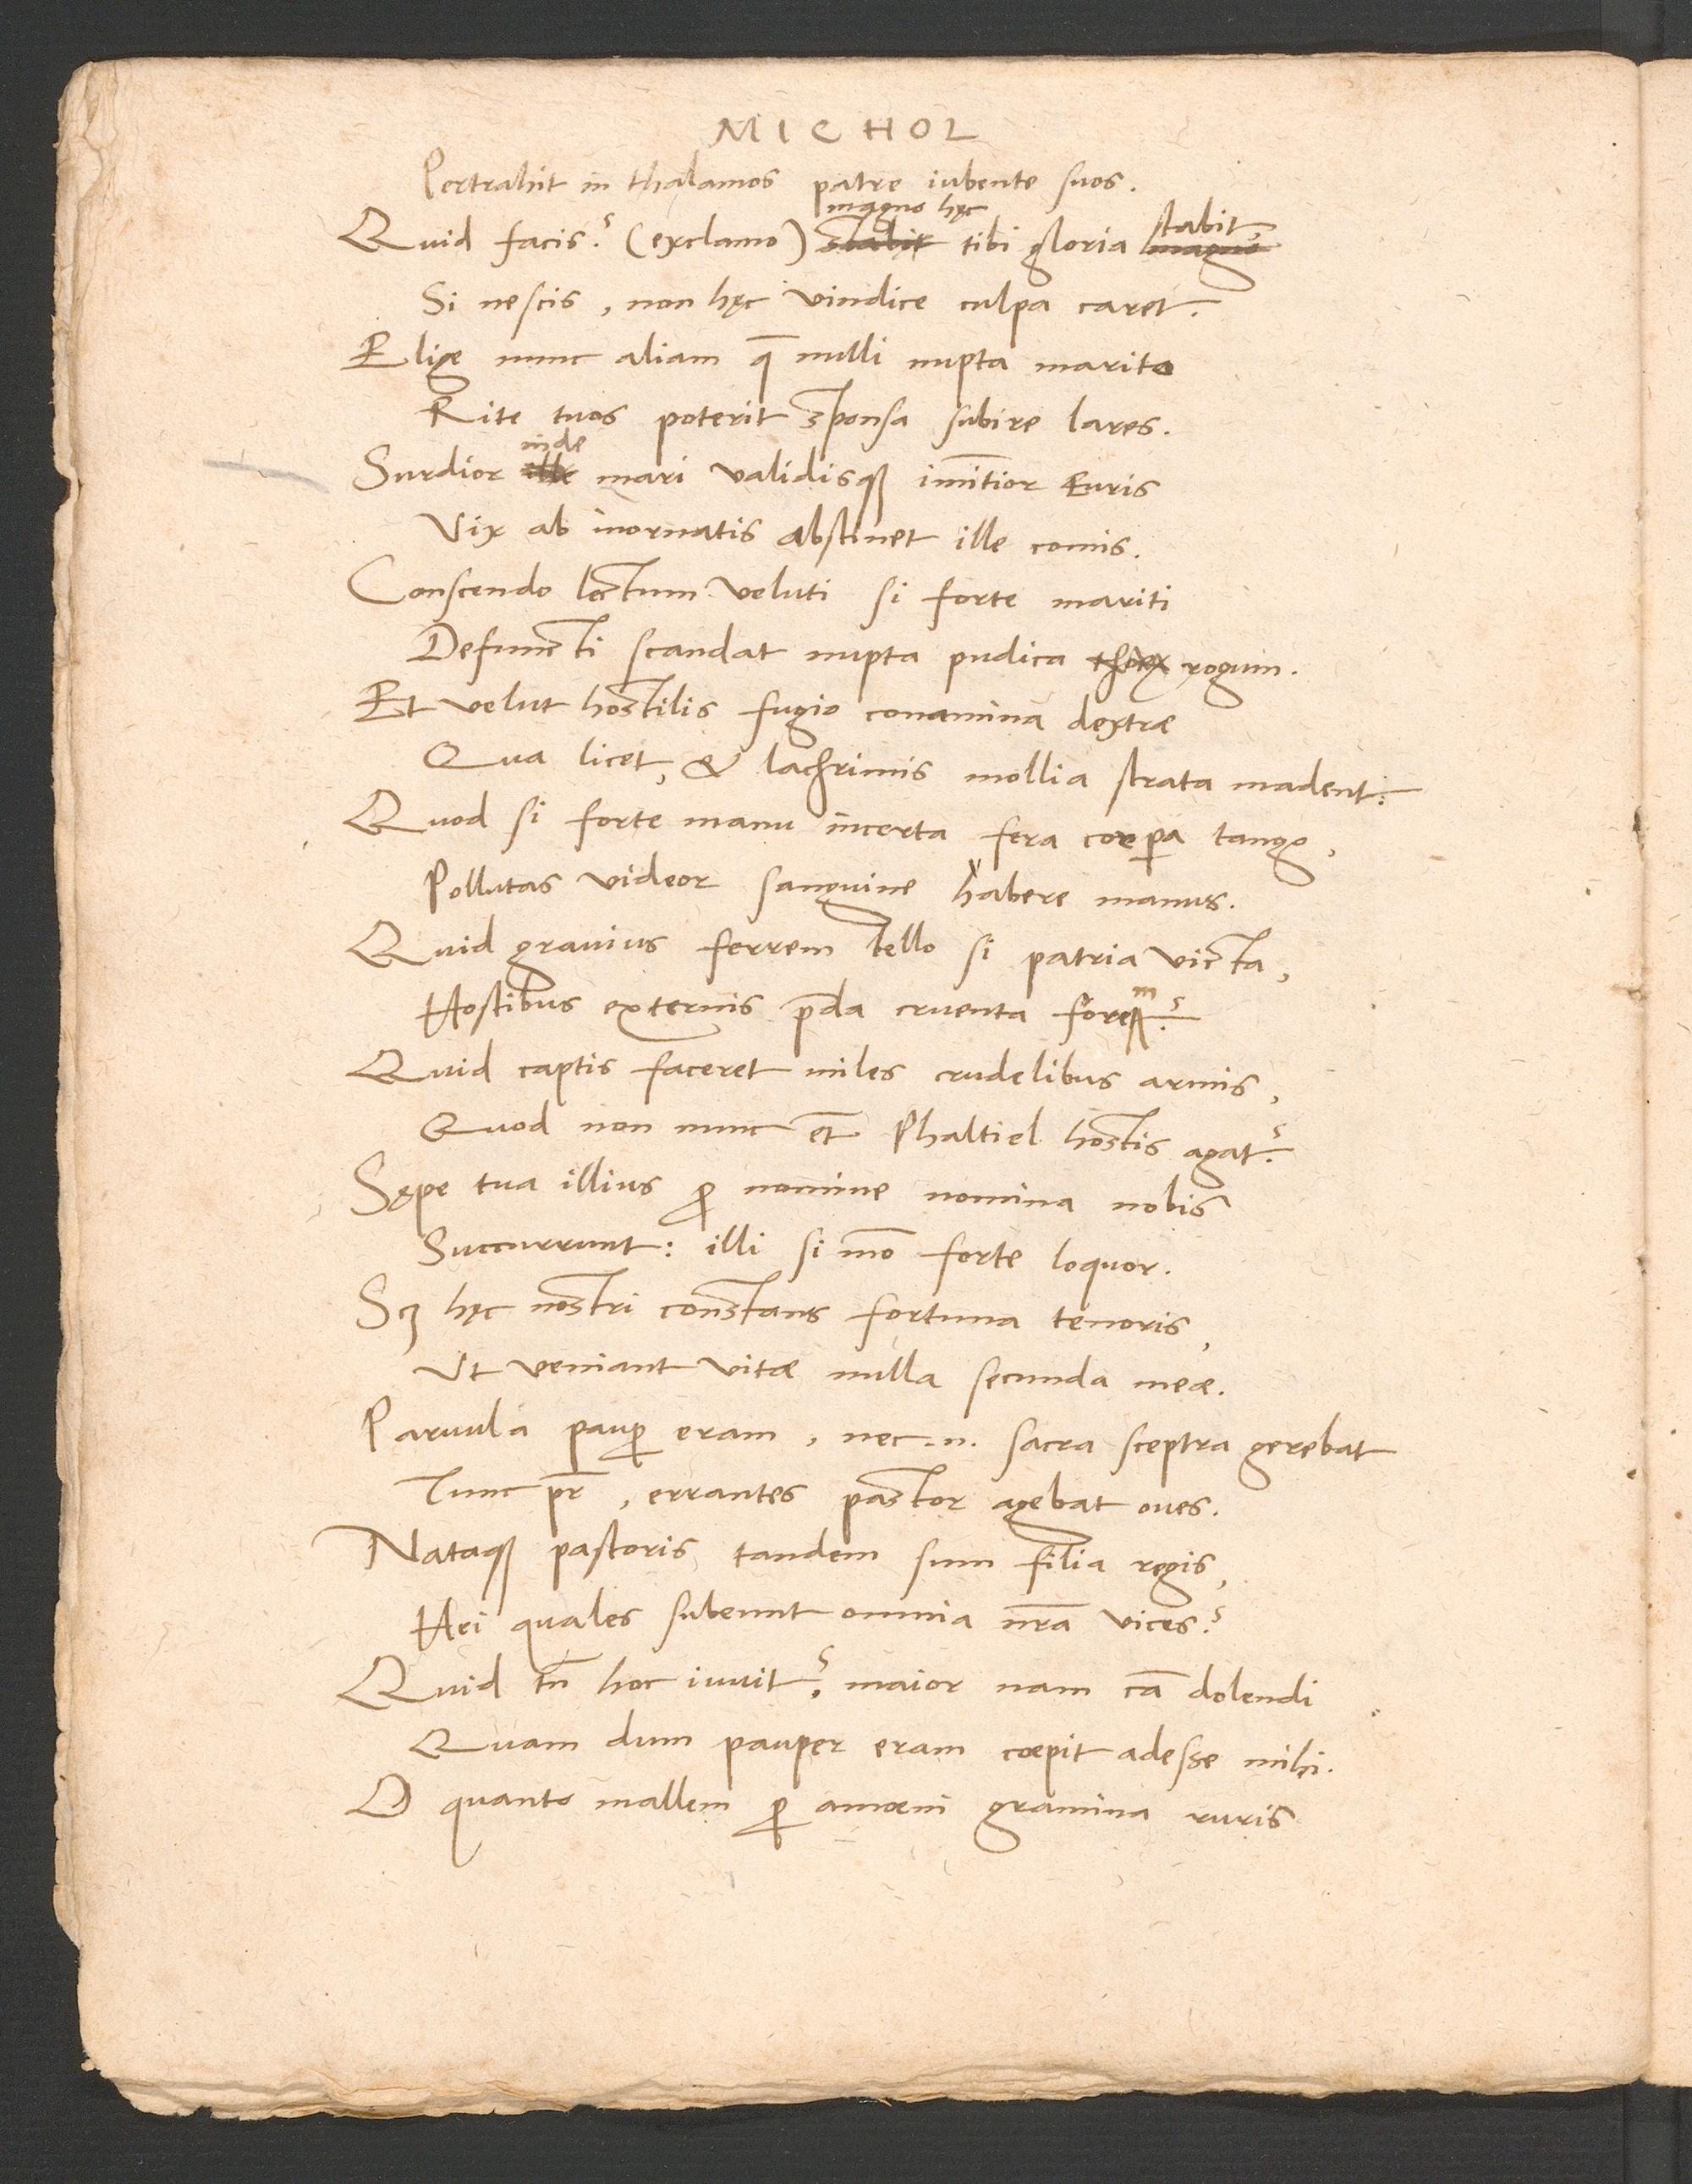 MICHOL
Pertrahit in thalamos patre iubente suos.
magno hęc stabit,
Quid facis? (exclamo) stabit tibi gloria magno
Si nescis, non hęc vindice culpa caret.
Elige nunc aliam q̄ nulli nupta marito
Rite tuos poterit sponsa subire lares.
inde
Surdior ille mari validisqꝫ imītior Euris
Vix ab inornatis abstinet ille comis.
Conscendo lectum veluti si forte mariti
Defuncti scandat nupta pudica rogum.
Et velut hostilis fugio conamina dextræ
Qua licet, & lachrimis mollia strata madent:
Quod si forte manu incerta fera corpa tango,
Pollutas videor sanguine habere manus.
Quid gravius ferrem bello si patria victa,
Hostibus externis p̄da cruenta forem?
Quid captis faceret miles crudelibus armis,
Quod non nunc et̄ Phaltiel hostis agat?
Sępe tua illius ꝓ nomine nomina nobis
Succurrunt: illi si mō forte loquor.
Scꝫ hęc nostri constans fortuna tenoris,
Ut veniant vitæ nulla secunda meæ.
Parvula paup̄ eram, nec .n. sacra sceptra gerebat
Tunc pr̄, errantes pastor agebat oves.
Nataqꝫ pastoris tandem sum filia regis,
Hei quales subeunt omnia nr̄a vices?
Quid tn̄ hoc iuvit? maior nam cā dolendi
Quam dum pauper eram cœpit adesse mihi.
O quanto mallem ꝑ amœni gramina ruris